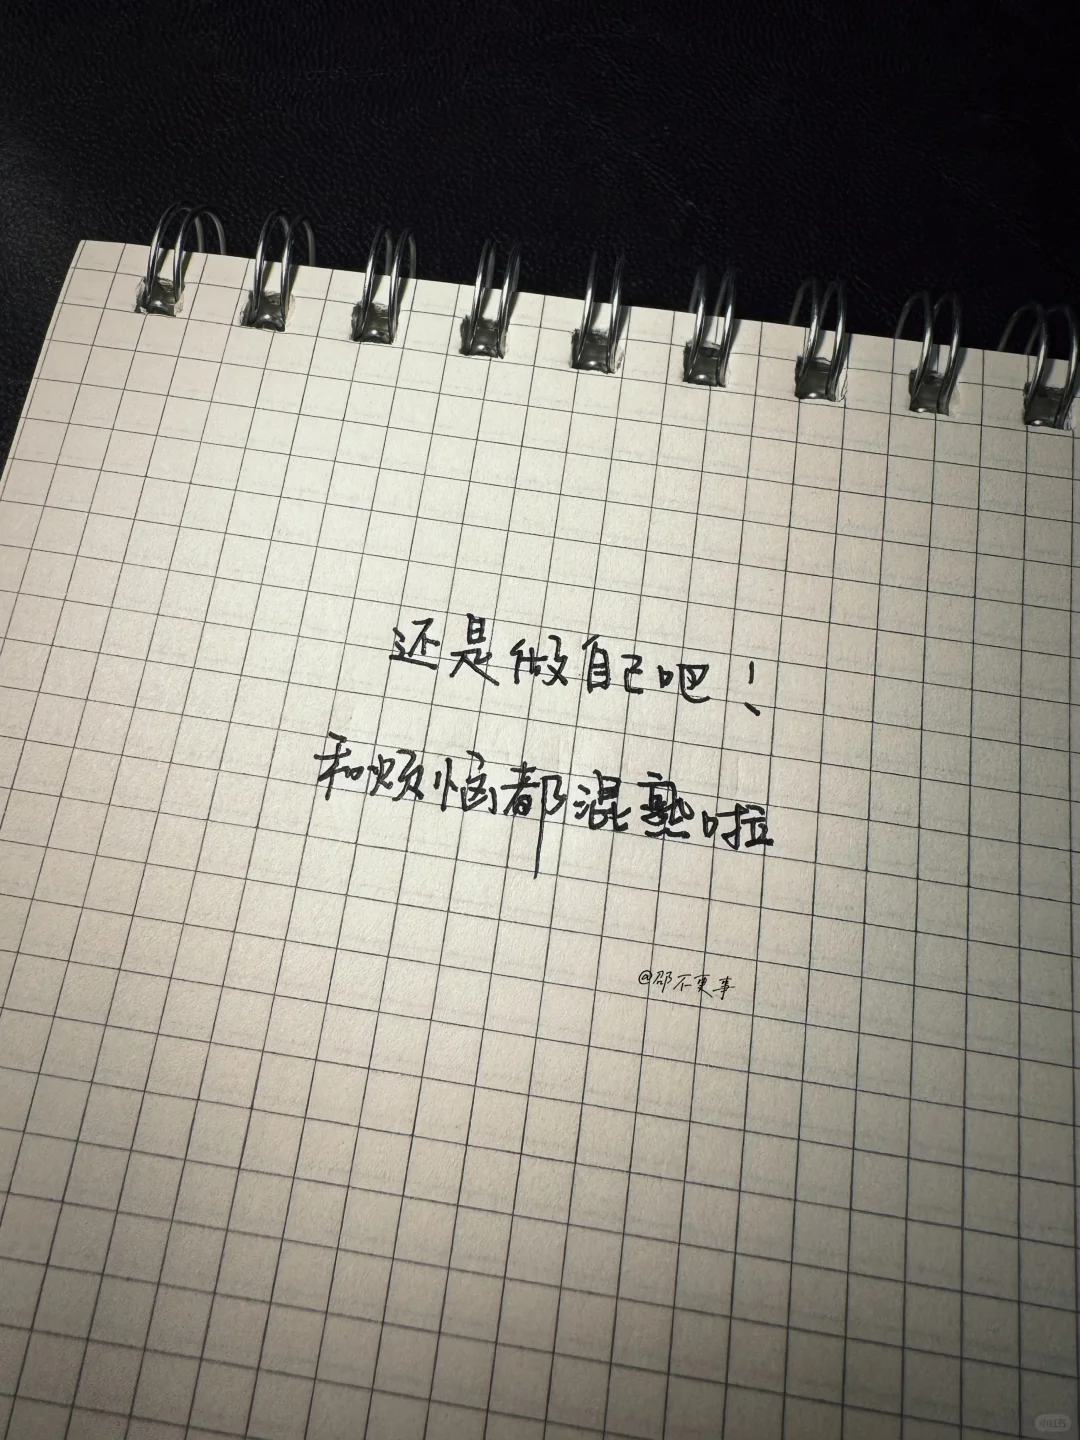 还是做自己吧！
和烦恼都混熟啦
@邵不更事
小红书